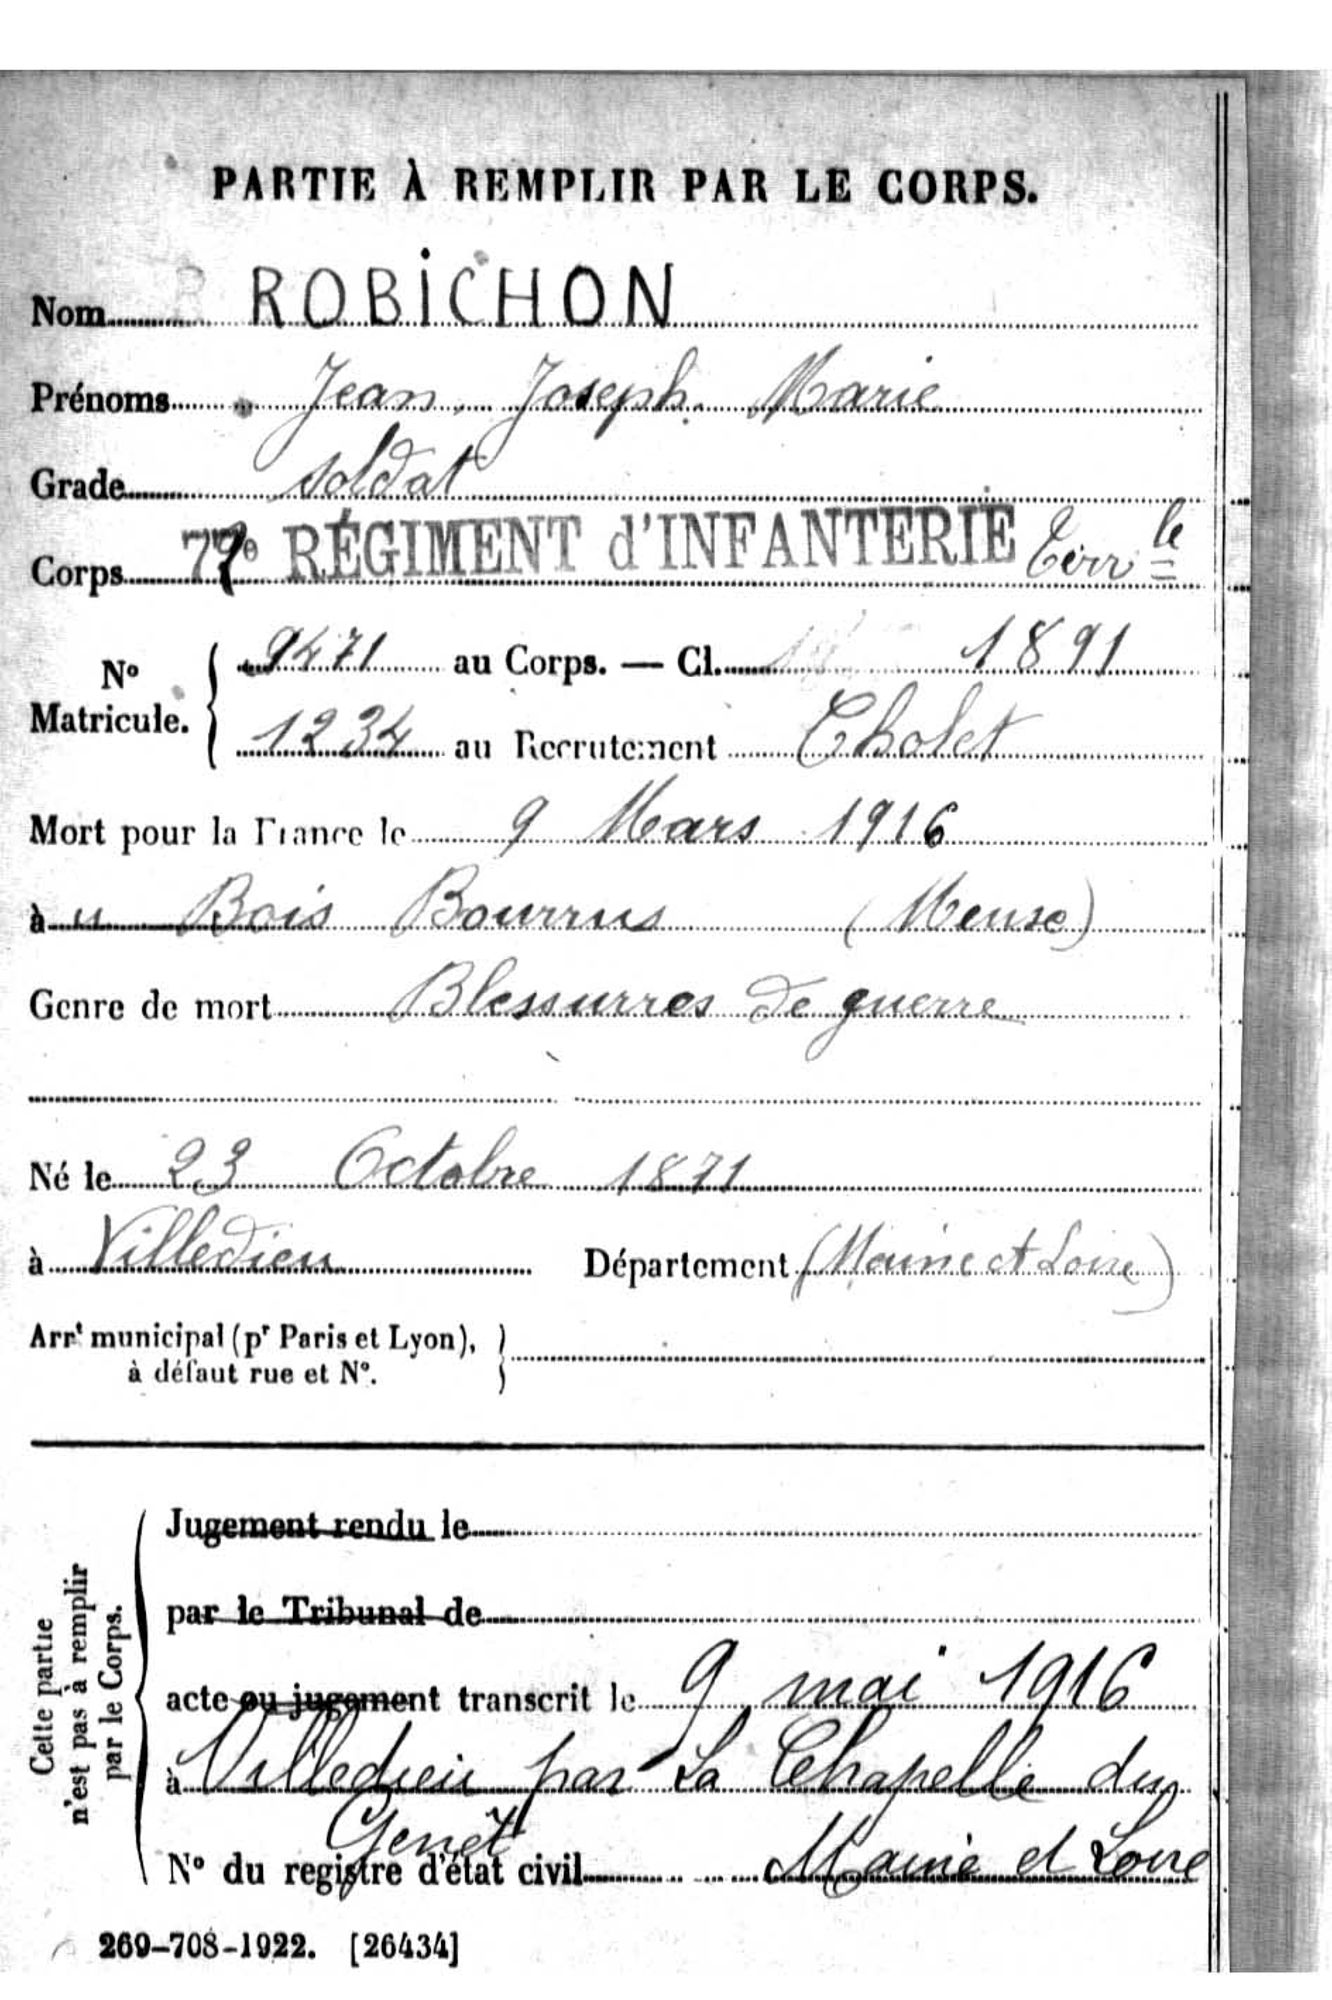 PARTIE À REMPLIR PAR LE CORPS.
Nom ROBICHON
Prénoms Jean, Joseph. Marie
Grade soldat
Corps 72e RÉGIMENT d'INFANTERIE Terr le
No Matricule. 9471 au Corps. — Cl. 1891
1234 au Recrutement Cholet
Mort pour la France le 9 Mars 1916
à u Bois Bourrus (Meuse)
Genre de mort Blessurres de guerre
Né le 23 Octobre 1871
à Villedieu Département (Maine et Loire)
Arrt municipal (pr Paris et Lyon),
à défaut rue et No.
Cette partie
n'est pas à remplir
par le Corps.
Jugement rendu le
par le Tribunal de
acte ou jugement transcrit le 9 mai 1916
à Villedieu par La Chapelle du
Genêt
No du registre d'état civil Maine et Loire
269-708-1922. [26434]